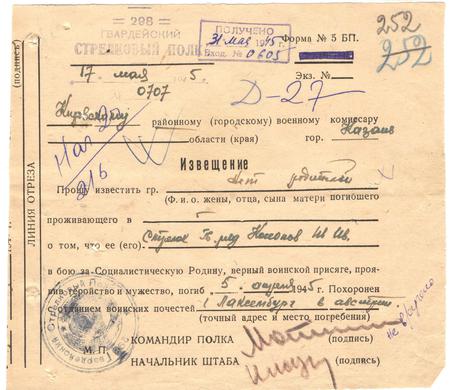 288
ГВАРДЕЙСКИЙ
СТРЕЛКОВЫЙ ПОЛК
ПОЛУЧЕНО
31 мая 1945 г.
Вход. № 0605
Форма № 5 БП.
252
252
17 мая 5.
Экз. №
0707
Д-27
районному (городскому) военному комиссару
области (края) гор. Казань
216
Извещение
Прошу известить гр. нет родителей
(Ф. и о. жены, отца, сына матери погибшего
проживающего в
о том, что ее (его). Стрелок Гв. ряд
в бою за Социалистическую Родину, верный воинской присяге, прояв-
ив геройство и мужество, погиб 5 апреля 1945 г. Похоронен
отданием воинских почестей г. Лаксенбург в австрии
(точный адрес и место погребения)
КОМАНДИР ПОЛКА
(подпись)
М. П.
НАЧАЛЬНИК ШТАБА
(подпись)
(подпись)
ЛИНИЯ ОТРЕЗА